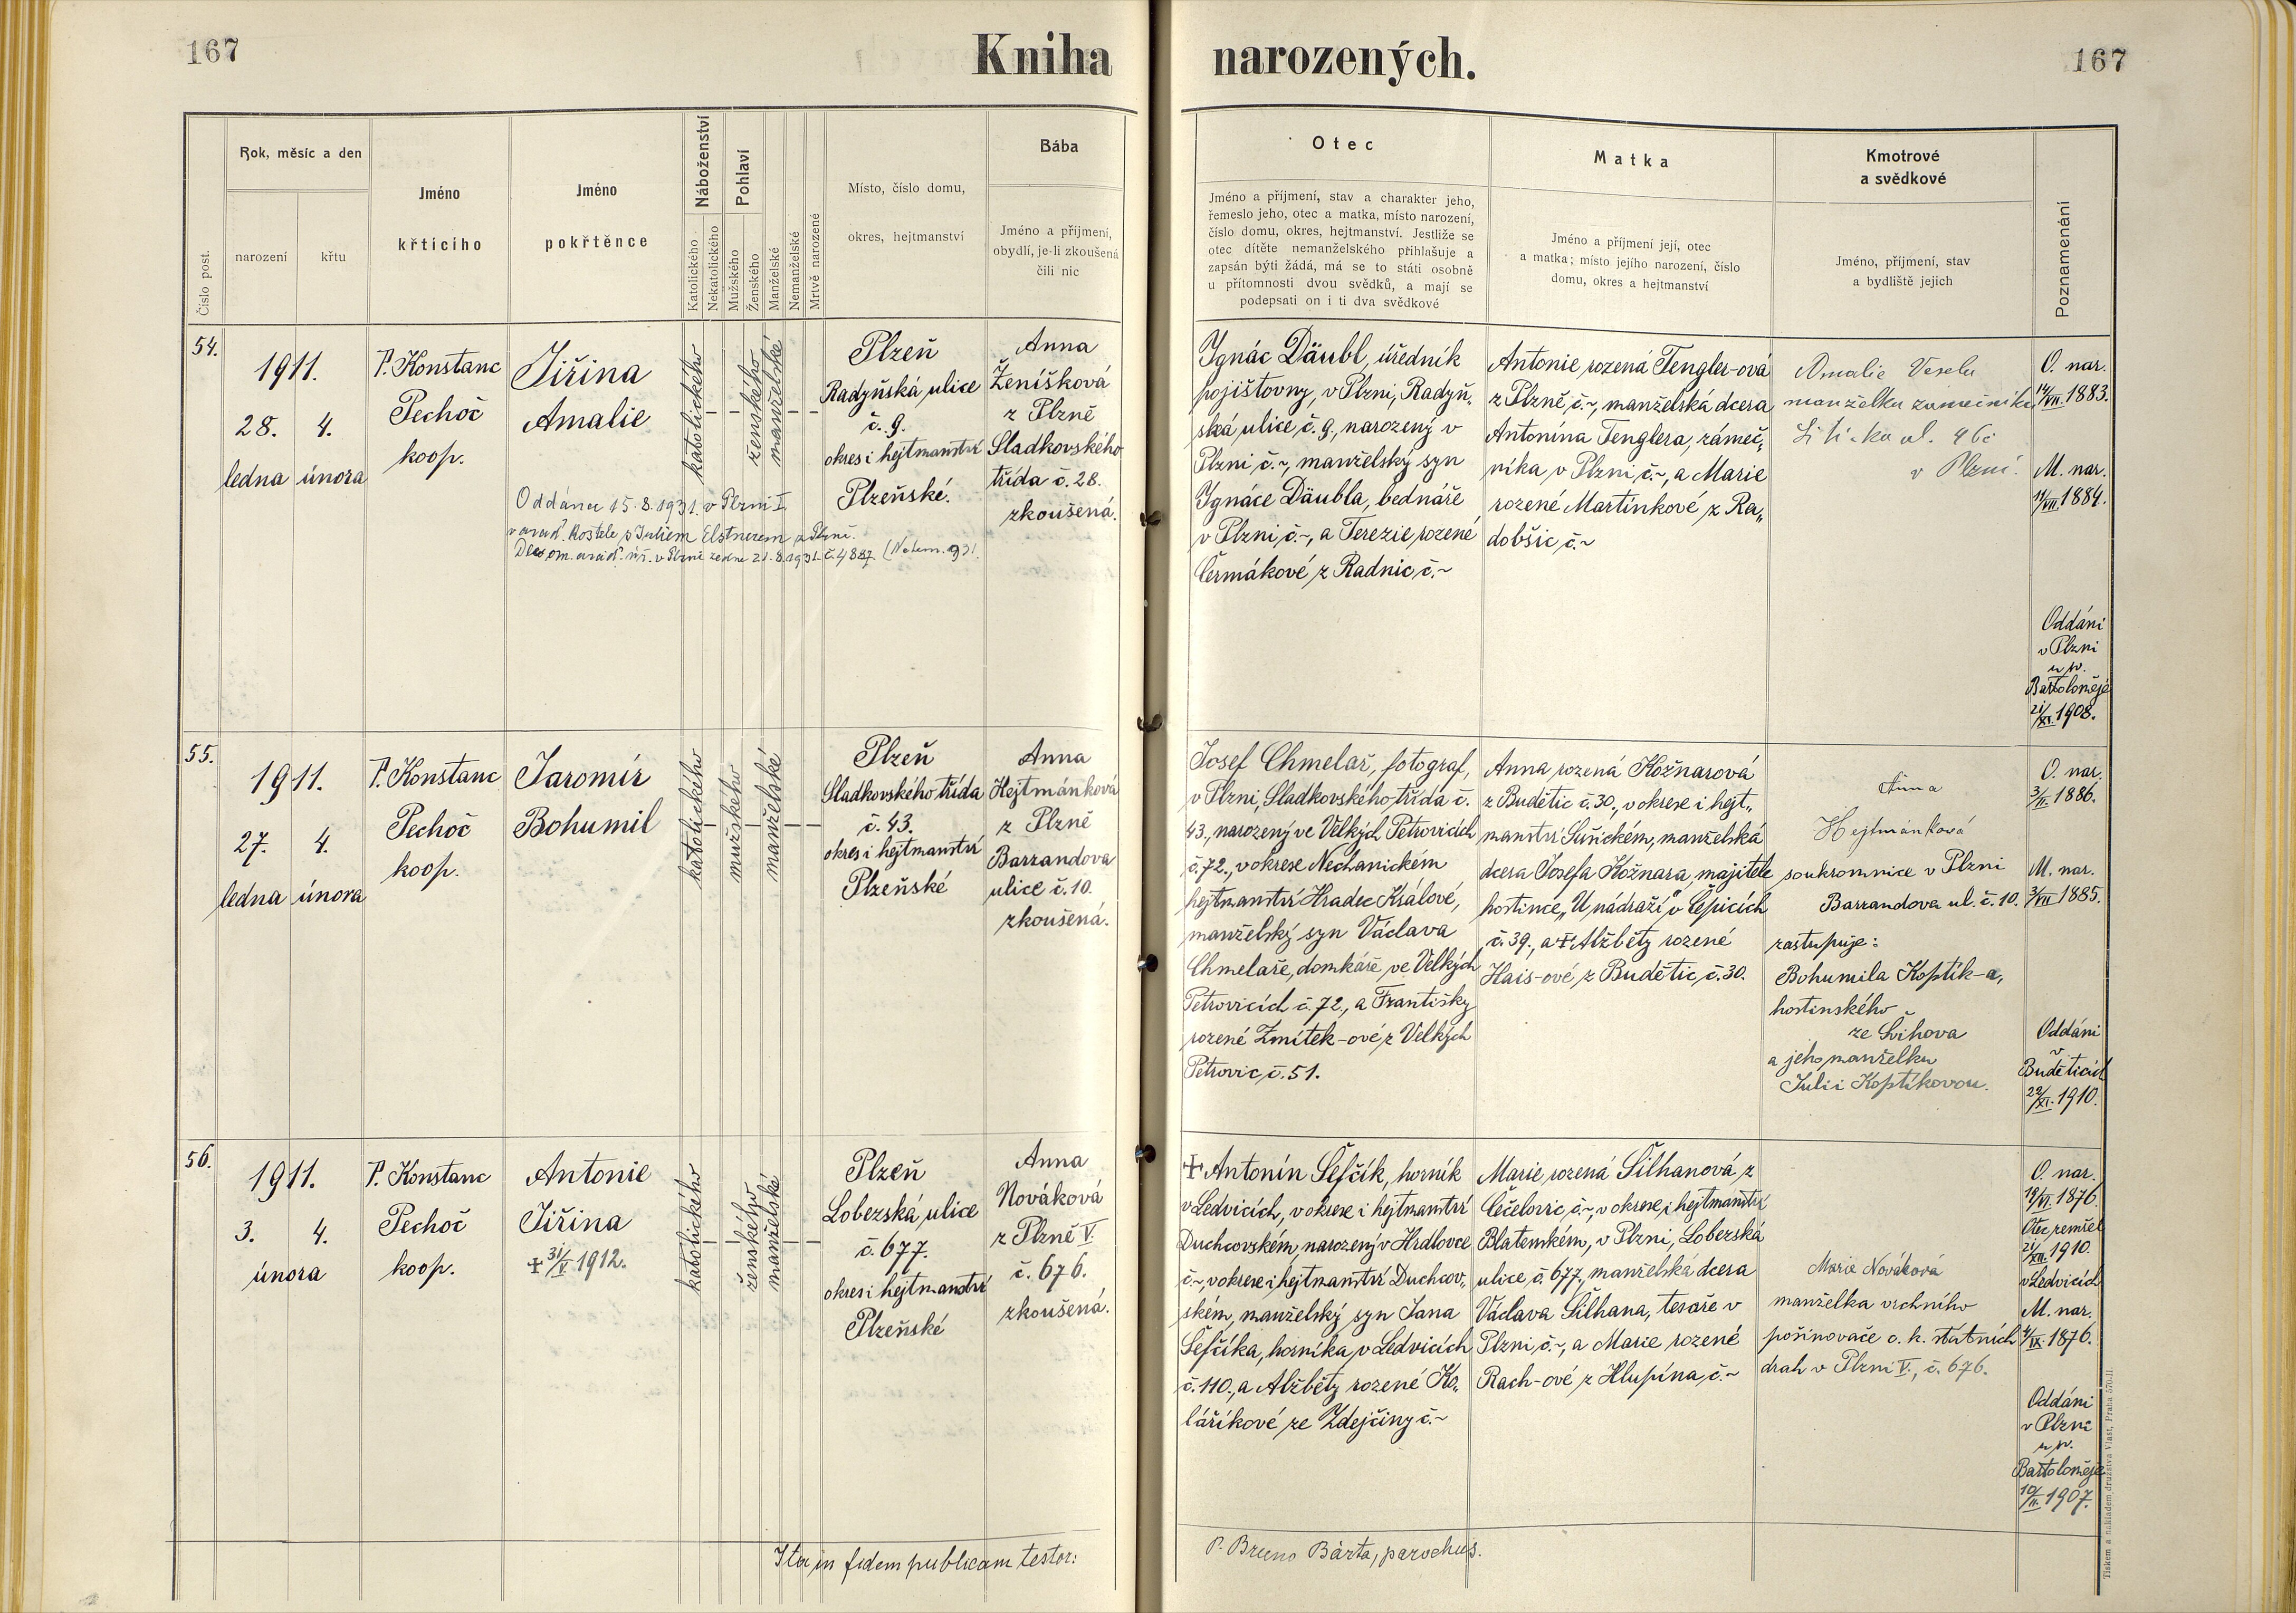 167
Kniha
narozených.
167
Číslo post.
Rok, měsíc a den
narození
křtu
Jméno
křtícího
Jméno
pokřtěnce
Náboženství
Katolického
Nekatolického
Pohlaví
Mužského
Ženského
Manželské
Nemanželské
Mrtvě narozené
Místo, číslo domu,
okres, hejtmanství
Bába
Jméno a příjmení,
obydlí, je-li zkoušená
čili nic
Otec
Jméno a příjmení, stav a charakter jeho,
řemeslo jeho, otec a matka, místo narození,
číslo domu, okres, hejtmanství. Jestliže se
otec dítěte nemanželského přihlašuje a
zapsán býti žádá, má se to státi osobně
u přítomnosti dvou svědků, a mají se
podepsati on i ti dva svědkové
Matka
Jméno a příjmení její, otec
a matka; místo jejího narození, číslo
domu, okres a hejtmanství
Kmotrové
a svědkové
Jméno, příjmení, stav
a bydliště jejich
Poznamenání
54.
1911.
28. 4.
ledna února
P. Konstanc
Pechoč
koop.
Jiřina
Amalie
Oddána 15.8.1931. v Plzni I.
v arciď. kostele s Juliem Elstnerem z Plzně.
katolického
ženského
manželské
Plzeň
Radyňská ulice
č. 9.
okres i hejtmanství
Plzeňské.
Anna
Ženíšková
z Plzně
Sladkovského
třída č. 28.
zkoušená.
Ignác Däubl, úředník
pojišťovny, v Plzni, Radyň„
ská ulice, č. 9., narozený v
Plzni č. ~, manželský syn
Ignáce Däubla, bednáře
v Plzni, č. ~, a Terezie, rozené
Čermákové z Radnic, č. ~
Antonie, rozená Tengler-ová
z Plzně, č. ~, manželská dcera
Antonína Tenglera, zámeč„
níka v Plzni, č. ~, a Marie
rozené Martinkové z Ra„
dobšic, č. ~
Amalie Veselá
manželka zámečníka
v Plzni.
O. nar.
14/VII. 1883.
M. nar.
14/VII. 1884.
Oddáni
v Plzni
u sv.
Bartoloměje
21/XI. 1908.
55.
1911.
27. 4.
ledna února
P. Konstanc
Pechoč
koop.
Jaromír
Bohumil
katolického
mužského
manželské
Plzeň
Sladkovského třída
č. 43.
okres i hejtmanství
Plzeňské
Anna
Hejtmánková
z Plzně
Barrandova
ulice č. 10.
zkoušená.
Josef Chmelař, fotograf,
v Plzni, Sladkovského třída č.
43., narozený ve Velkých Petrovicích
č. 72., v okrese Nechanickém
hejtmanství Hradec Králové,
manželský syn Václava
Chmelaře, domkáře, ve Velkých
Petrovicích č. 72., a Františky
rozené Zmítek-ové z Velkých
Petrovic, č. 51.
Anna, rozená Kožnarová
z Budětic č. 30., v okrese i hejt„
manství Sušickém, manželská
dcera Josefa Kožnara, majitele
hostince „U nádraží" v Čepicích
č. 39., a ✝ Alžběty rozené
Hais-ové z Budětic, č. 30.
Anna
Hejtmánková
soukromnice v Plzni
Barrandova ul. č. 10.
zastupuje:
Bohumila Koptík-a,
hostinského
ze Švihova
a jeho manželku
Julii Koptíkovou.
O. nar.
3/II. 1886.
M. nar.
3/VII 1885.
Oddáni
v
Buděticích
22/XI. 1910.
56.
1911.
3. 4.
února
P. Konstanc
Pechoč
koop.
Antonie
Jiřina
✝ 31/V 1912.
katolického
ženského
manželské
Plzeň
Lobezská ulice
č. 677.
okres i hejtmanství
Plzeňské
Anna
Nováková
z Plzně V.
č. 676.
zkoušená.
✝ Antonín Šefčík, horník
v Ledvicích, v okrese i hejtmanství
Duchcovském, narozený v Hrdlovce
č. ~, v okrese i hejtmanství Duchcov„
ském, manželský syn Jana
Šefčíka, horníka v Ledvicích
č. 110., a Alžběty rozené Ko„
láříkové ze Zdejčiny č. ~
Marie, rozená Šilhanová z
Čečelovic, č. ~, v okrese, i hejtmanství
Blatenském, v Plzni, Lobezská
ulice, č. 677., manželská dcera
Václava Šilhana, tesaře v
Plzni, č. ~, a Marie rozené
Rach-ové z Hlupína, č. ~
Marie Nováková
manželka vrchního
pošinovače c. k. státních
drah v Plzni V., č. 676.
O. nar.
1876.
Otec zemřel
21/XII. 1910.
v Ledvicích
M. nar.
4/IX. 1876.
Oddáni
v Plzni
u sv.
Bartoloměje
10/II. 1907.
Ita in fidem publicam testor:
P. Bruno Bárta, parochus.
Tiskem a nákladem družstva Vlast, Praha 570-II